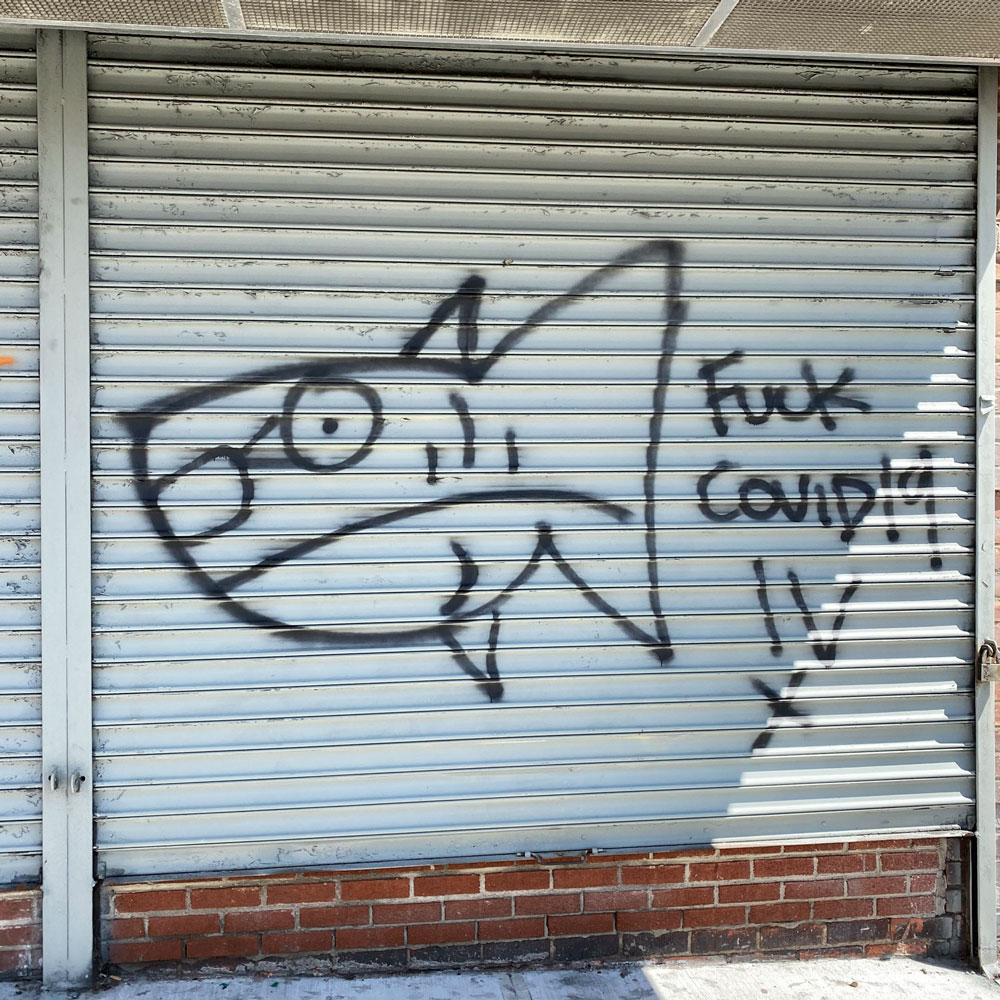 Fuck
COVID!!9!
IV
X